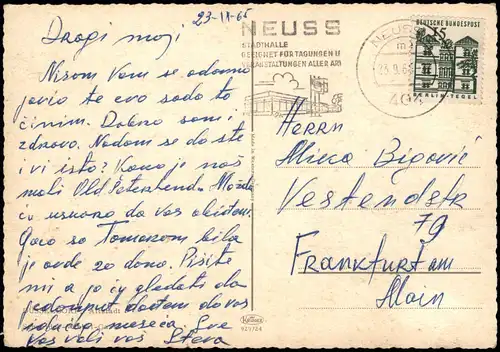 23-IX-65
Dragi moji
Nisam Vam se odavno
javio te evo sada to
činim. Dobro sam i
zdravo. Nadam se da ste
i vi isto? Kako je naš
mali Old Peterhend. Možda
ću uskoro da vas obiđem.
Gara sa Tomazom bila
je ovde 20 dana. Pišite
mi a ja ću gledati da
jedanput dođem do vas
idućeg meseca. Sve
vas voli vaš Steva
NEUSS
STADTHALLE
GEEIGNET FÜR TAGUNGEN U
VERANSTALTUNGEN ALLER ART
NEUSS
23.9.65
404
DEUTSCHE BUNDESPOST
15
BERLIN-TEGEL
Herrn
Mirco Bigović
Vestendstr
79
Frankfurt am
Main
Krüger
921/24